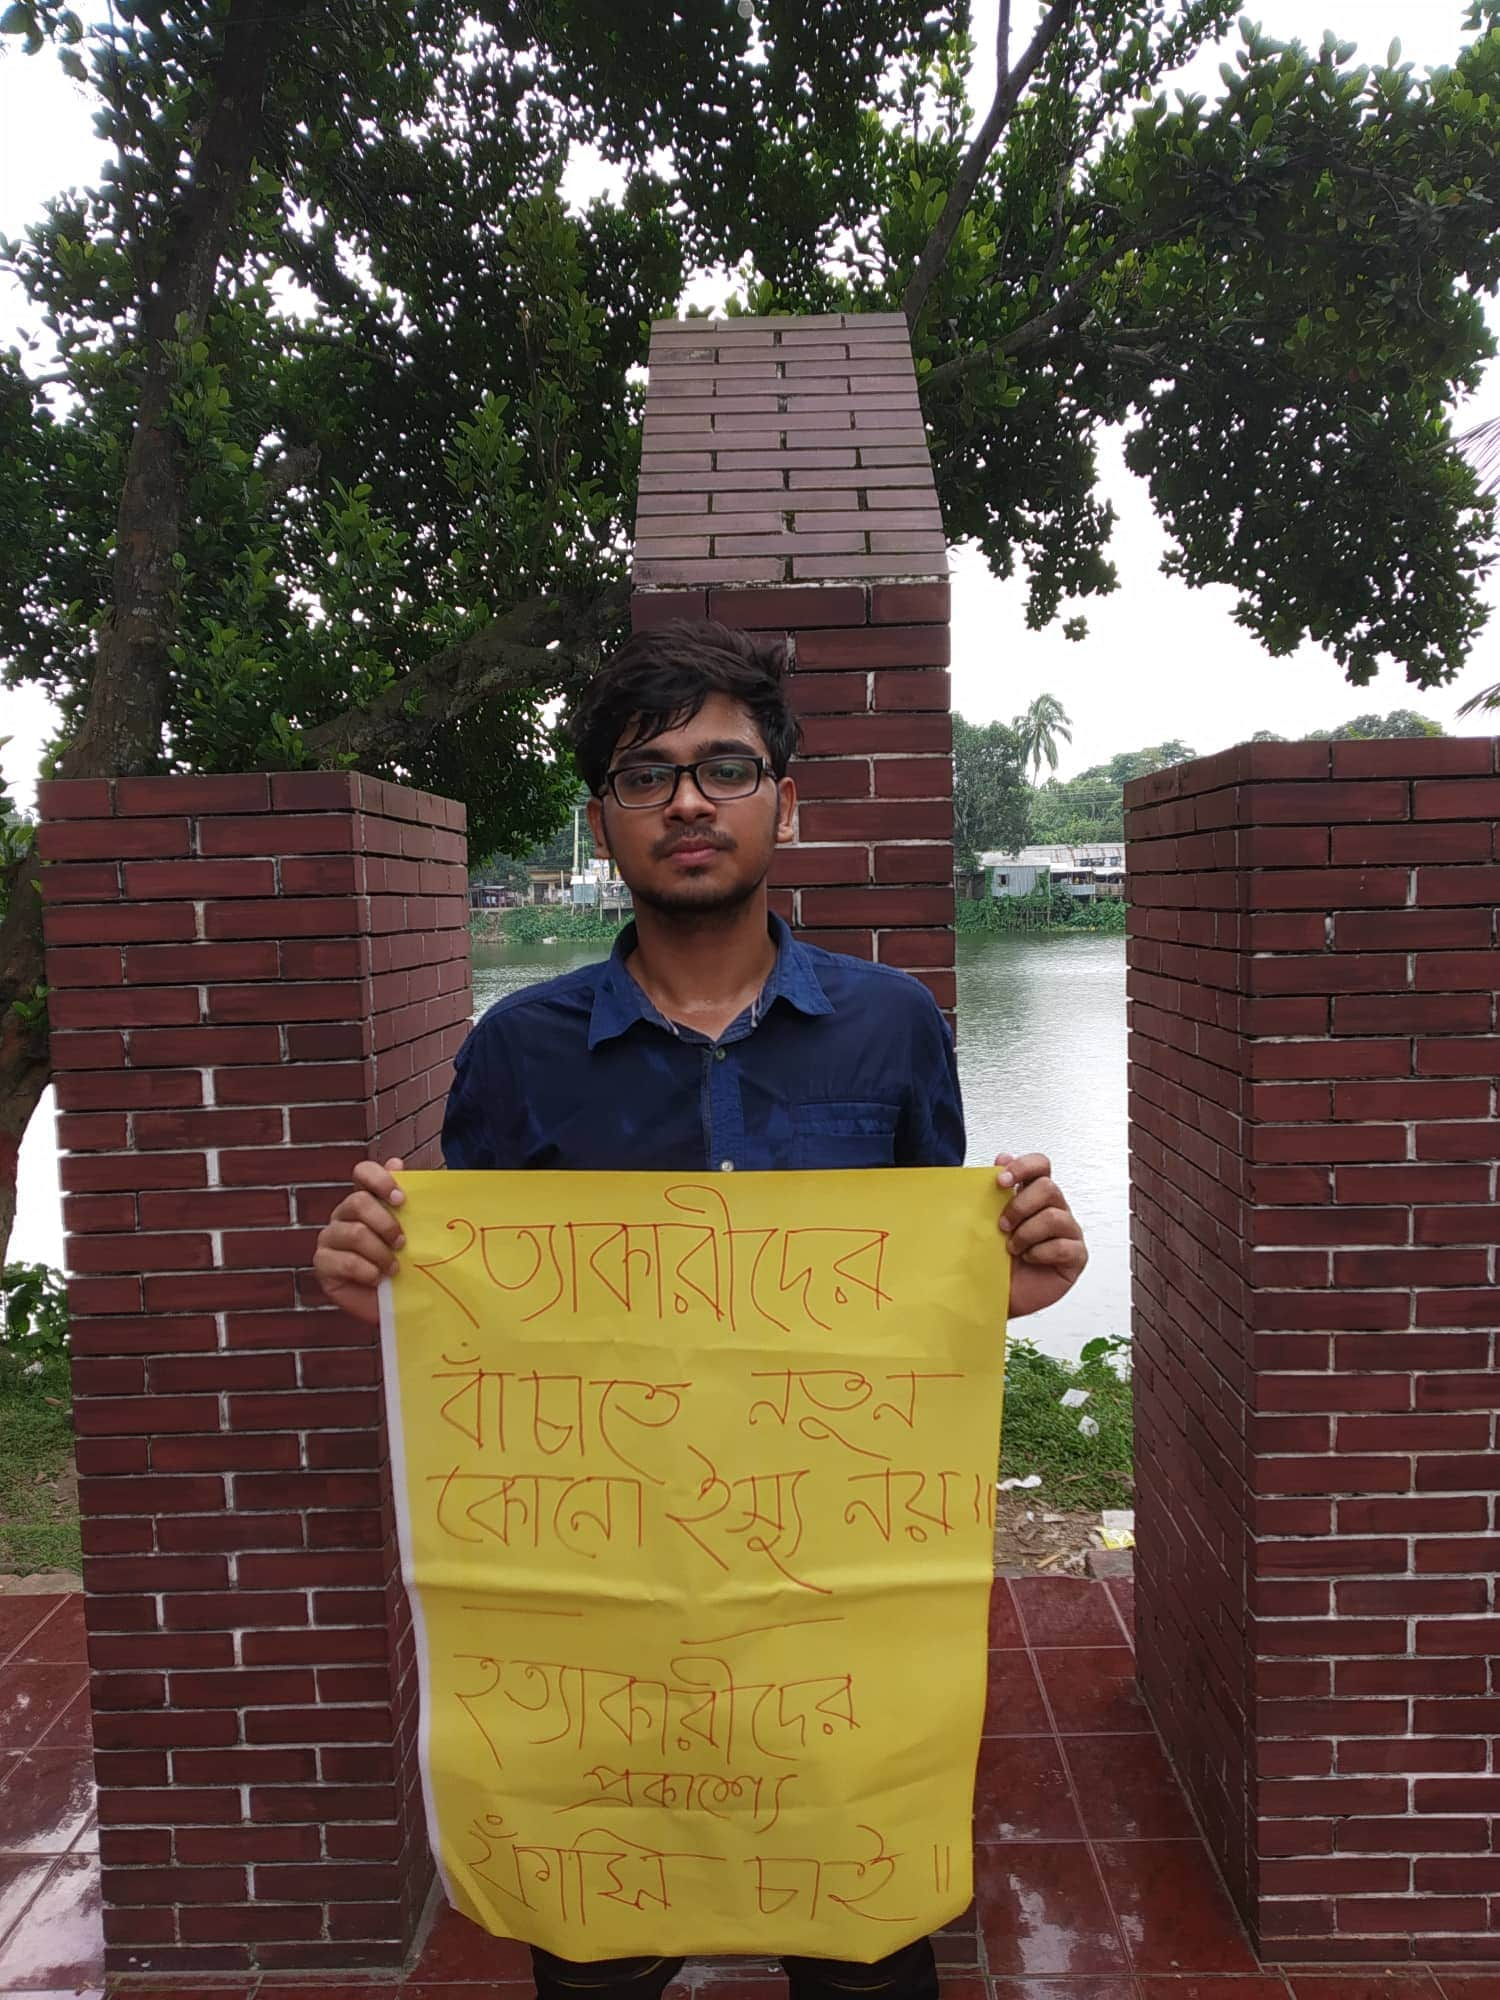 হত্যাকারীদের
বাঁচাতে নতুন
কোনো ইস্যু নয়॥
হত্যাকারীদের
প্রকাশ্যে
ফাঁসি চাই॥